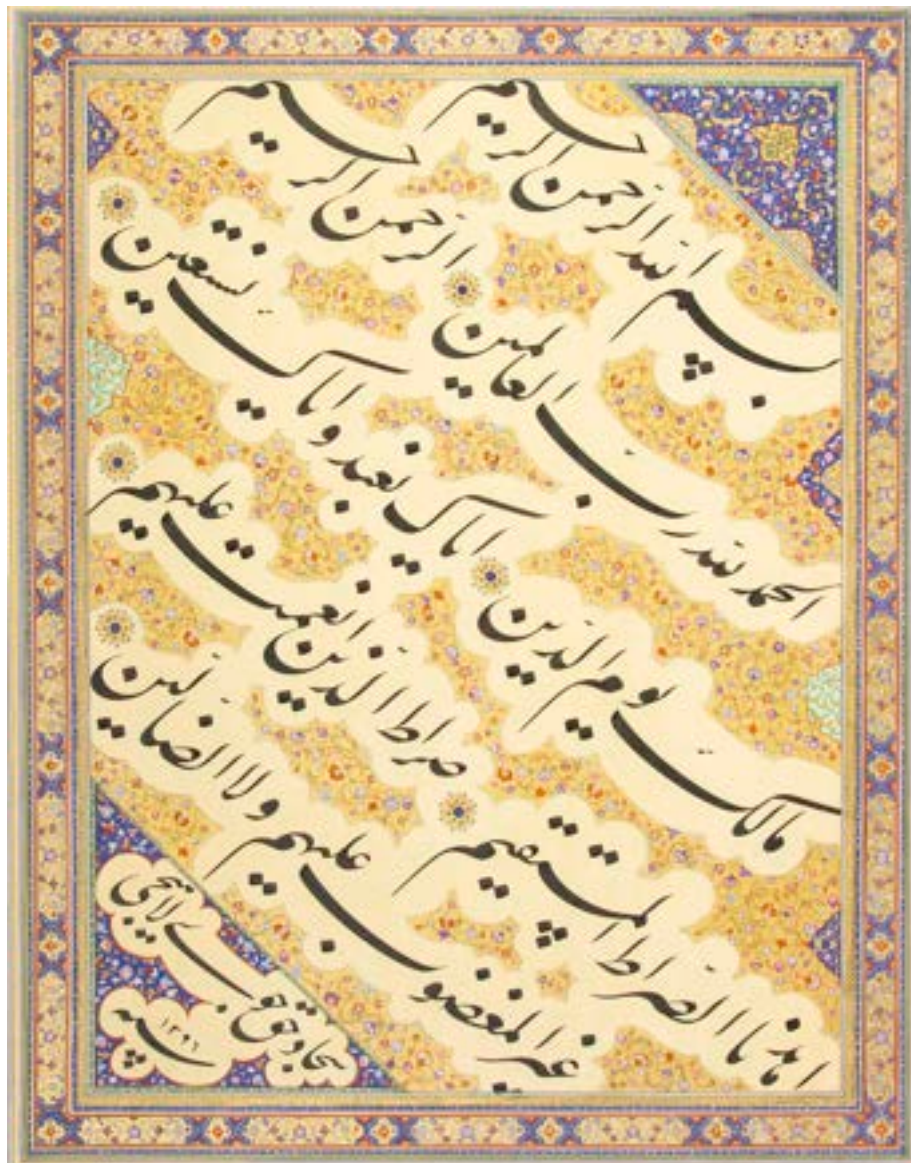 بسم الله الرحمن الرحیم
الحمد لله رب العالمین
الرحمن الرحیم
مالک یوم الدین
ایاک نعبد و ایاک نستعین
اهدنا الصراط المستقیم
صراط الذین انعمت علیهم
غیر المغضوب علیهم
ولا الضالین
سنه ۱۳۹۱